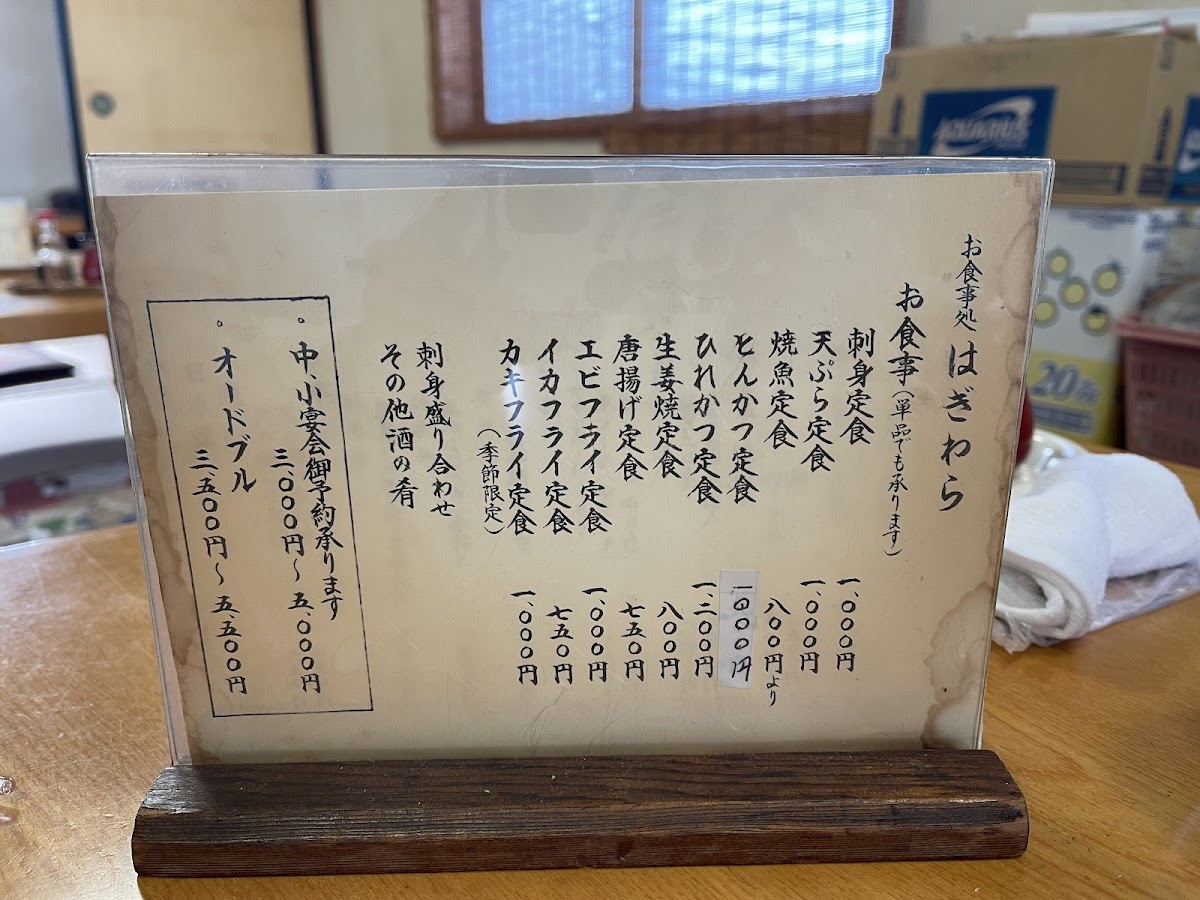 お食事処 はぎわら
お食事（単品でも承ります）
刺身定食 一、〇〇〇円
天ぷら定食 一、〇〇〇円
焼魚定食 八〇〇円より
とんかつ定食 一〇〇〇円
ひれかつ定食 一、二〇〇円
生姜焼定食 八〇〇円
唐揚げ定食 七五〇円
エビフライ定食 一、〇〇〇円
イカフライ定食 七五〇円
カキフライ定食 一、〇〇〇円
（季節限定）
刺身盛り合わせ
その他酒の肴
。中、小宴会御予約承ります
三、〇〇〇円〜五、〇〇〇円
。オードブル
三、五〇〇円〜五、五〇〇円
AQUARIUS
20